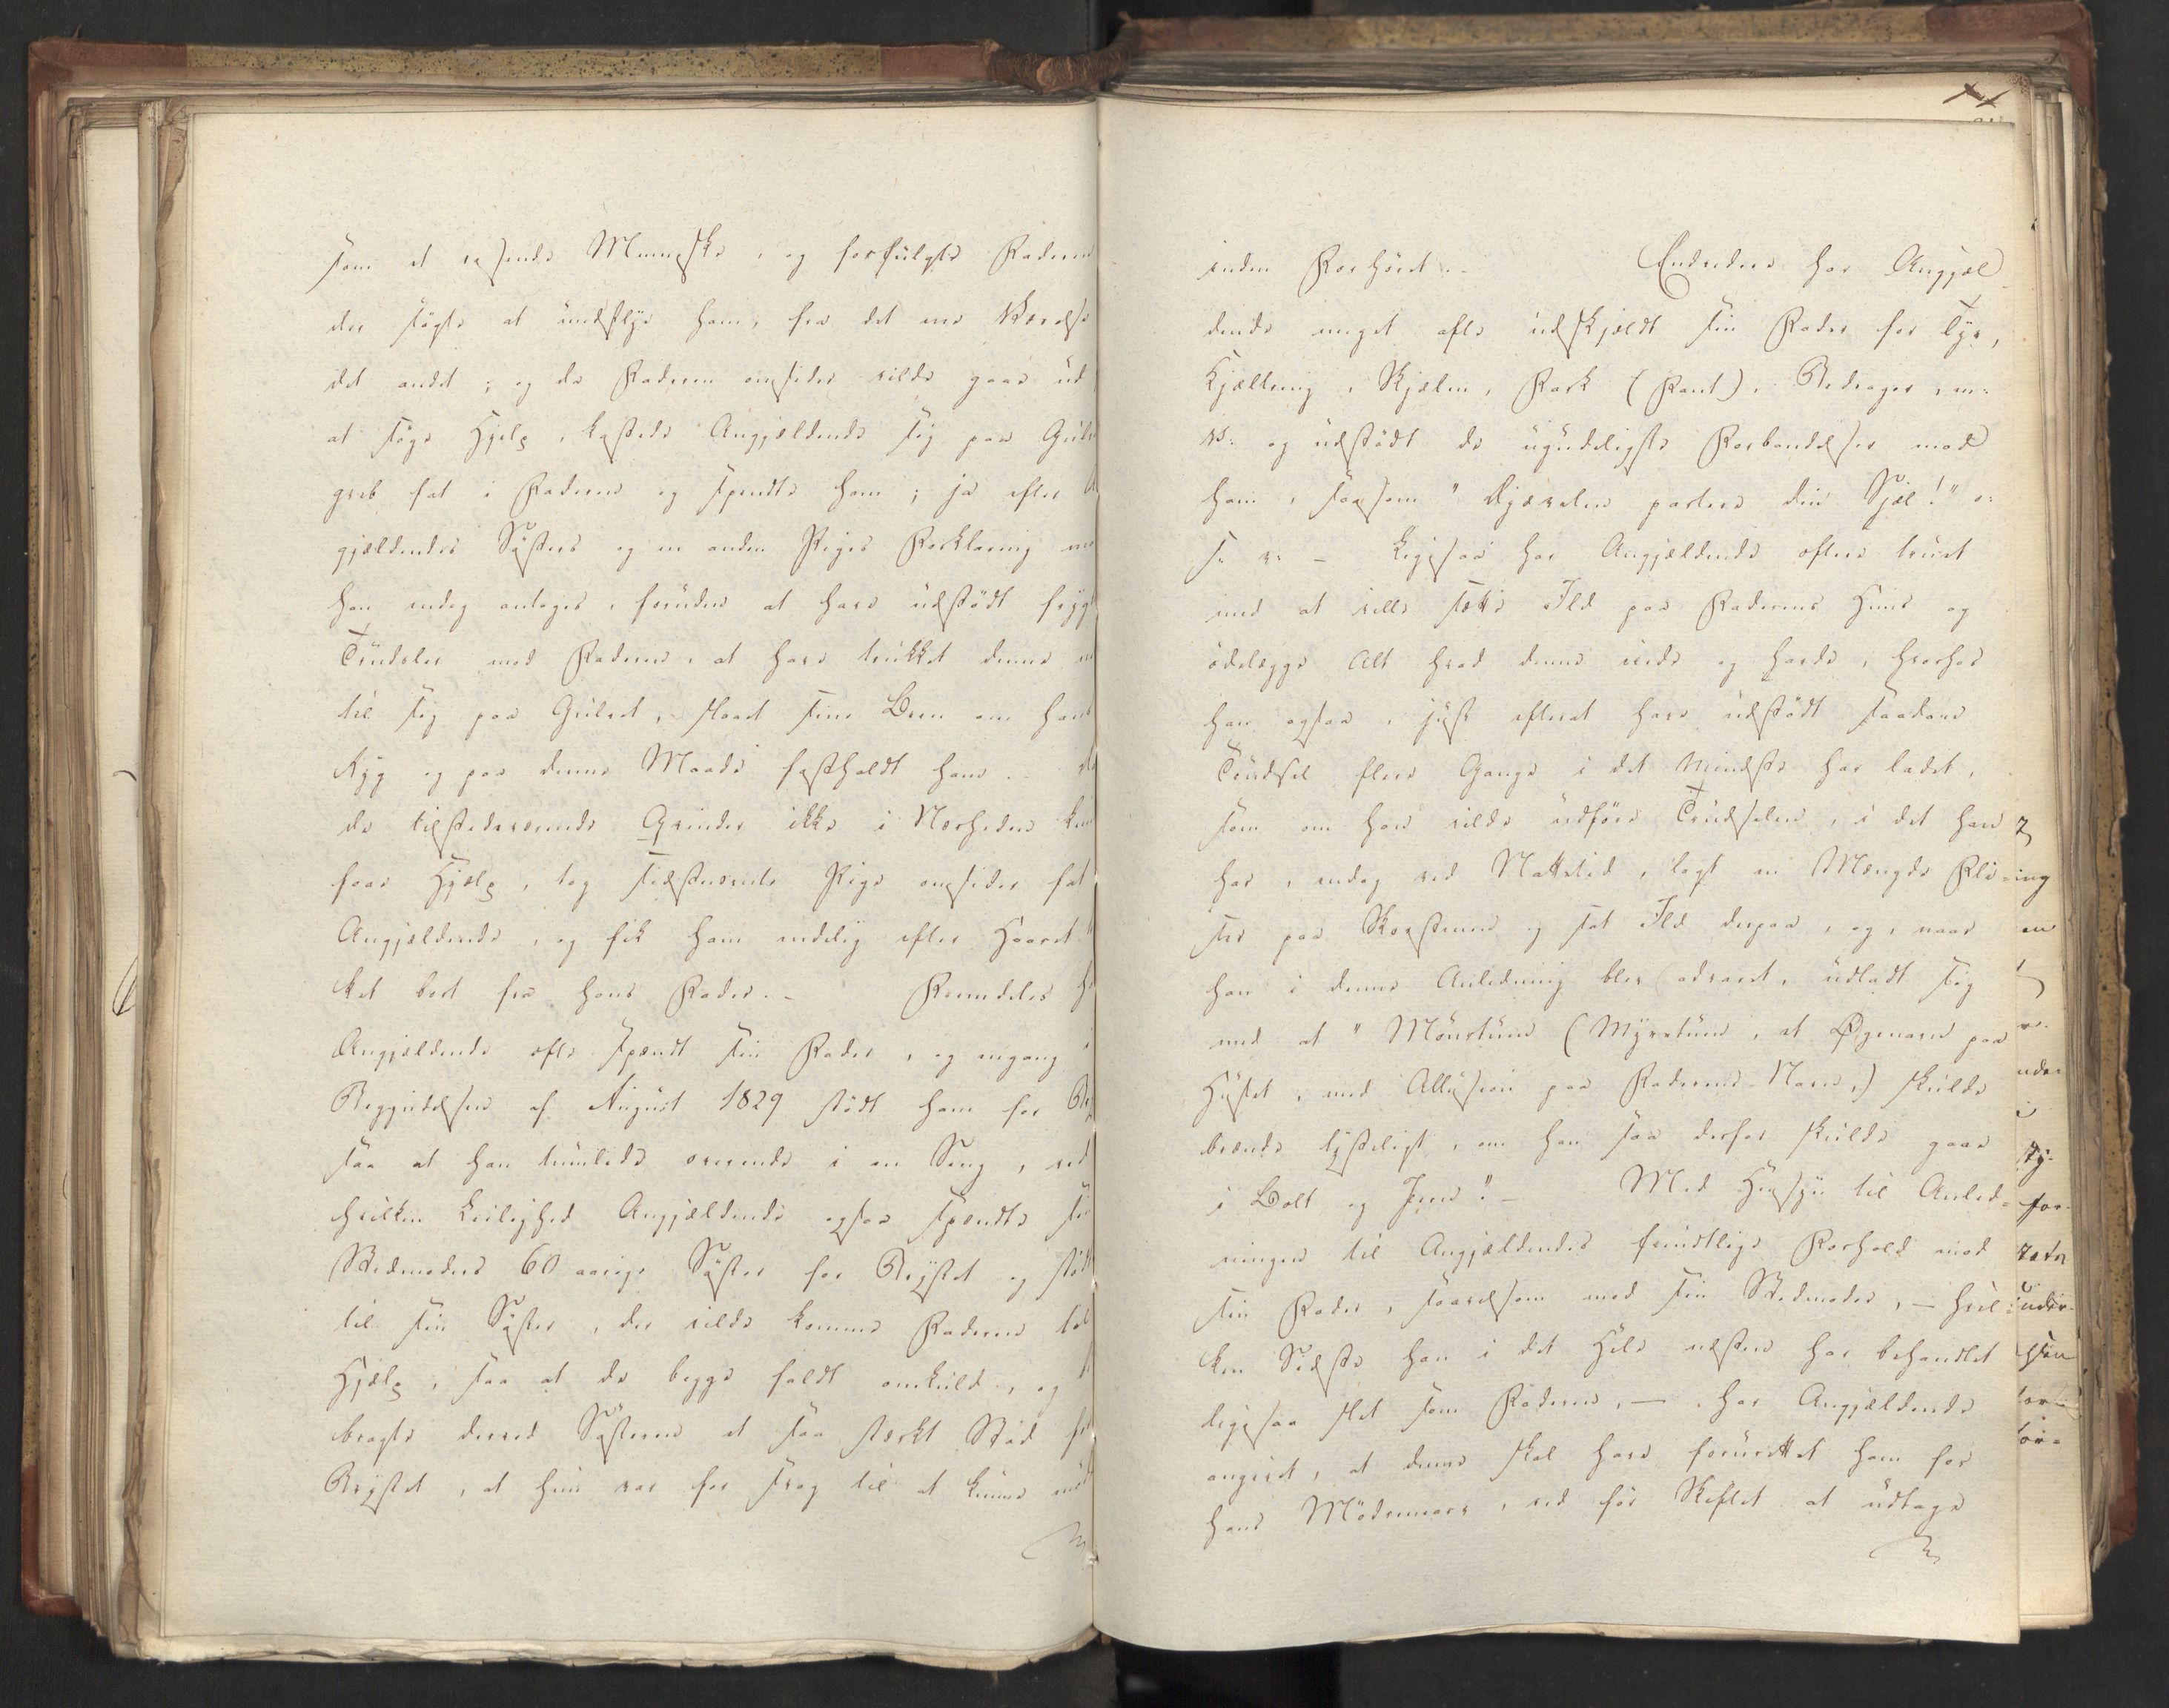 som et rasende Menneske, og forfulgte Faderen
der søgte at undflye ham, fra det ene Værelse
det andet; og da Faderen omsider vilde gaae ud
at søge Hjelp, kastede Angjældende sig paa Gulv
greb fat i Faderen og spendte ham; ja efter A
gjældendes Søsters og en anden Piges Forklaring
han endog antages, foruden at have udstødt frygt
Trudsler mod Faderen, at have trukket denne
til sig paa Gulvet, slaaet sine Been om hans
Ryg og paa denne Maade fastholdt ham. - 
de tilstedeværende Qvinder ikke i Nærheden kun
faae Hjælp, tog sidstnævnte Pige omsider fat
Angjældende, og fik ham endelig efter Haaret
ket bort fra hans Fader. - Fremdeles h
Angjældende ofte spændt sin Fader, og engang i
Begyndelsen af August 1829 stødt ham for Bry
saa at han tumlede overende i en Seng, ved
hvilken Leilighed Angjældende ogsaa spændte sin
Stedmoders 60 aarige Søster for Brystet og stød
til sin Søster, der vilde komme Faderen til
Hjælp, saa at de begge faldt omkuld, og
bragte derved Søsteren et saa stærkt Stød for
Brystet, at hun var for svag til at kunne mød
inden Forhøret. - Endvidere har Angjæl-
dende meget ofte udskjældt sin Fader for Tyv,
Kjæltring, Skjælm, Fark (Fant), Bedrager, m:
v: og udstødt de ugudeligste Forbandelser mod
ham, saasom "Djævelen partere din Sjæl!" o:
s. v: - Ligesaa har Angjældende oftere truet
med at ville sætte Ild paa Faderens Huus og
ødelægge Alt hvad denne eiede og havde, hvorhos
han ogsaa, just efterat have udstødt saadan
Trudsel flere Gange i det mindste har ladet,
som om han vilde udføre Trudselen, i det han
har, endog ved Nattetid, lagt en Mængde Fli-
ser paa Skorstenen og sat Ild derpaa, og, naar
han i denne Anledning blev advaret, udladt sig
med at "Mönstuen (Myrstuen, et Øgenavn paa
Huset, med Allusion paa Faderens Navn,) skulde
brænde lysteligt, om han saa derfor skulde gaae
i Bolt og Jern". - Med Hensyn til Anled-
ningen til Angjældendes fiendtlige Forhold mod
sin Fader, saavelsom mod sin Stedmoder, - hvil-
ken Sidste han i det Hele næsten har behandlet
ligesaa slet som Faderen, - har Angjældende
angivet, at denne skal have forurettet ham for
hans Mødrenearv, ved før Skiftet at udtage